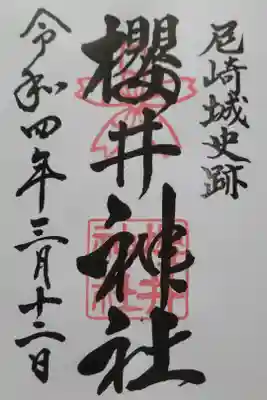 尼崎城史跡
櫻井神社
櫻井
神社
令和四年三月十二日